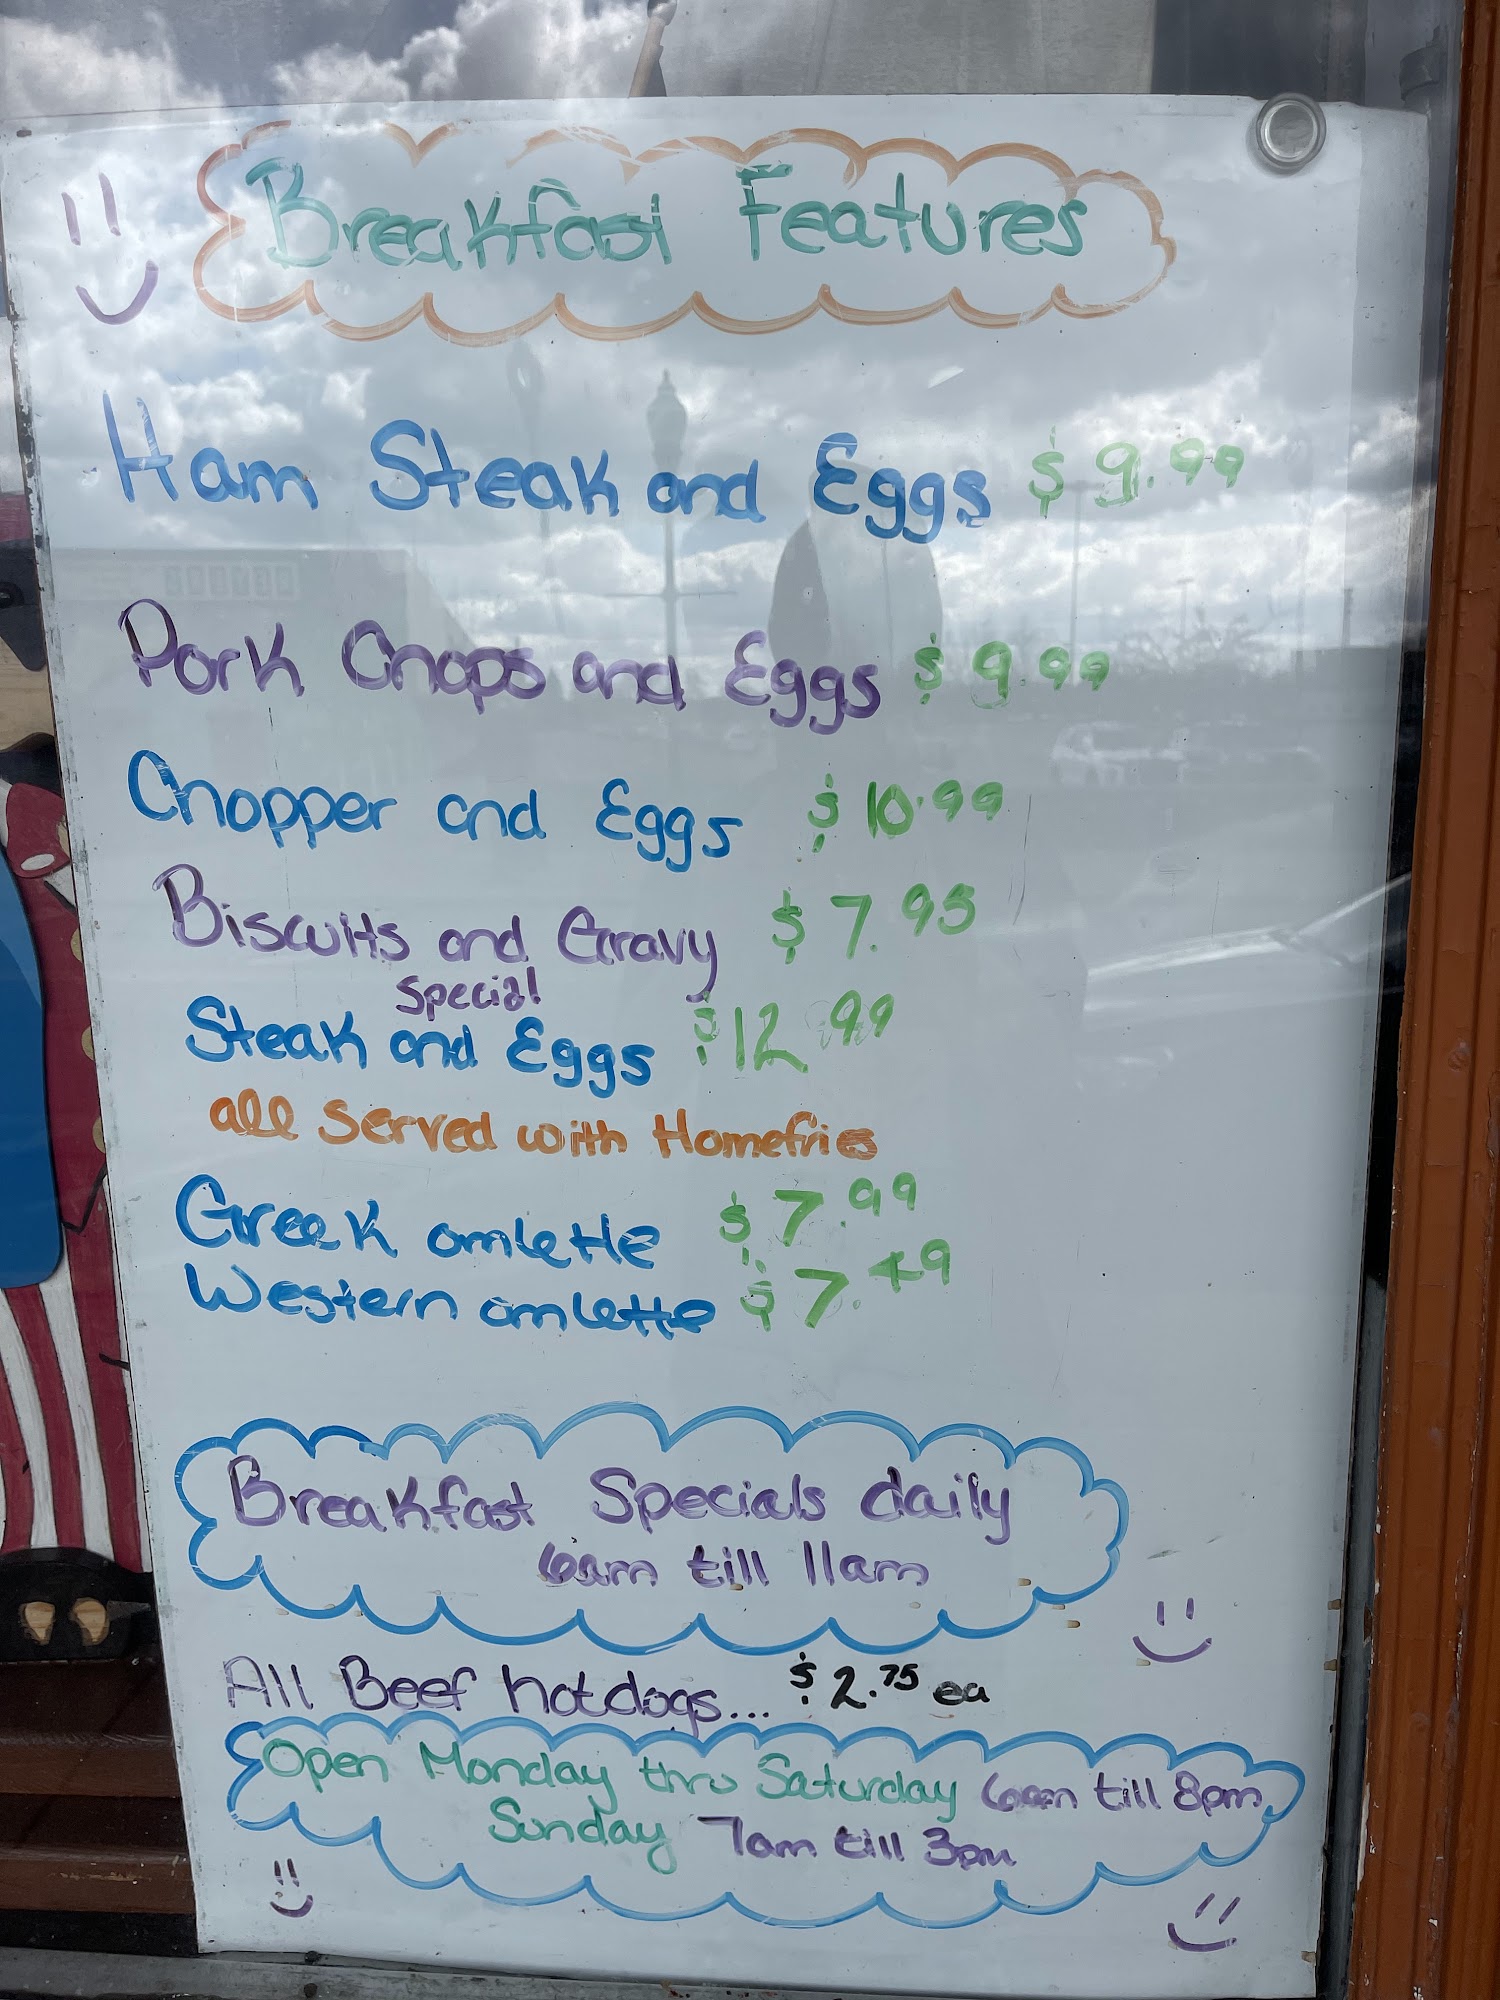 Breakfast Features
Ham Steak and Eggs $9.99
Pork Chops and Eggs $9.99
Chopper and Eggs $10.99
Biscuits and Gravy $7.95
Special
Steak and Eggs $12.99
all served with Homefries
Greek omlette $7.99
Western omlette $7.49
Breakfast Specials daily
6am till 11am
All Beef hotdogs... $2.75 ea
Open Monday thru Saturday 6am till 8pm
Sunday 7am till 3pm